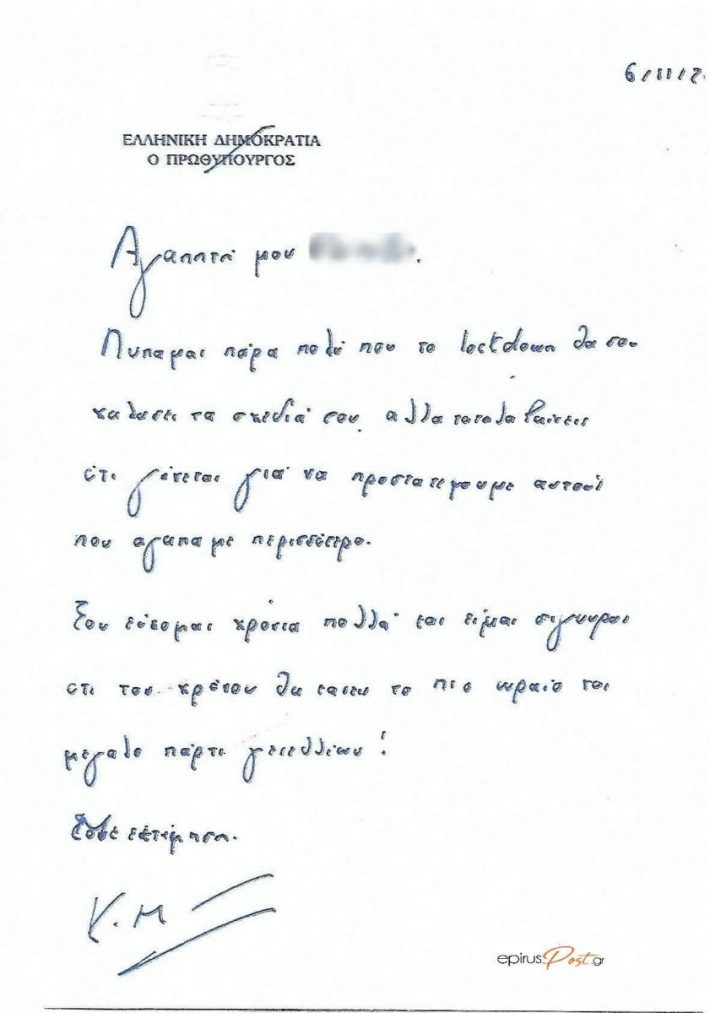 6/11/2
ΕΛΛΗΝΙΚΗ ΔΗΜΟΚΡΑΤΙΑ
Ο ΠΡΩΘΥΠΟΥΡΓΟΣ
Αγαπητή μου
Λυπαμαι πάρα πολύ που το lockdown θα σου
χαλασει τα σχεδιά σου, αλλα καταλαβαίνεις
ότι γίνεται γιά να προστατεψουμε αυτούς
που αγαπαμε περισσότερο.
Σου εύχομαι χρόνια πολλά και είμαι σιγουρος
οτι του χρόνου θα κανεις το πιο ωραίο και
μεγαλο πάρτι γενεθλίων!
εκτίμηση.
Κ.Μ
epirusPost.gr